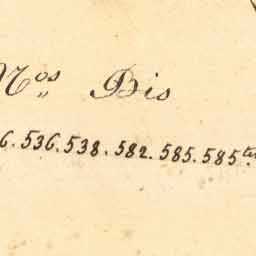 Nos Bis
6. 536. 538. 582. 585. 585 ter